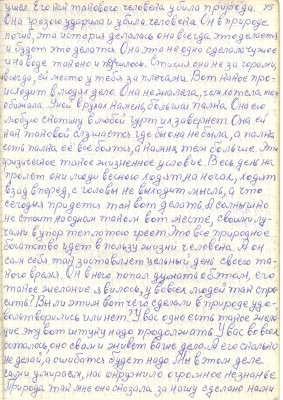 ушел. Его как такового человека убила природа. 75
Она грозою ударила и убила человека. Он в природе
погиб, эта история делалась она всегда это делает
и будет это делать. Она это не одно сделало чужое
и на воде так оно и пришлось. Стихия она не за горами,
всегда, её место у тебя за плечами. Вот такое про-
исходит в людях дело. Она не жалела, чем хотела так
обижала. У ней в руках камень, большая палка. Она его
любую скотину в любой гурт их завернет. Она ей
как таковой слушается где бы она не была, а палка
есть палка её все боятся, а камня тем больше. Это
физическое такое жизненное условие. Весь день на
пролет они люди весною ходят на ногах, ходят
взад вперед, с головы не выходит мысль, а что
сегодня придется так вот делать. А солнышко
не стоит на одном таком вот месте, своими лу-
чами в упор теплотою греет. Это все природное
богатство идет в пользу жизни человека. А он
сам себя так заставляет целый день своего та-
кого время. Он в него попал думать об этом, его
такое желание явилось, у во всех людей так спро-
сить! Вы ли этим вот чего сделали в природе, удо-
вольтворились или нет? У вас одно есть такое жела-
ние эту вот штуку надо продолжать. У вас во всех
осталось, оно с вами живет ваше дело. А его сильно
не делай, а ошибатся будет надо. Мы в этом деле
сами умираем, нас окружило огромное незнанье.
Природа так мне она сказала за нашу сделано нами